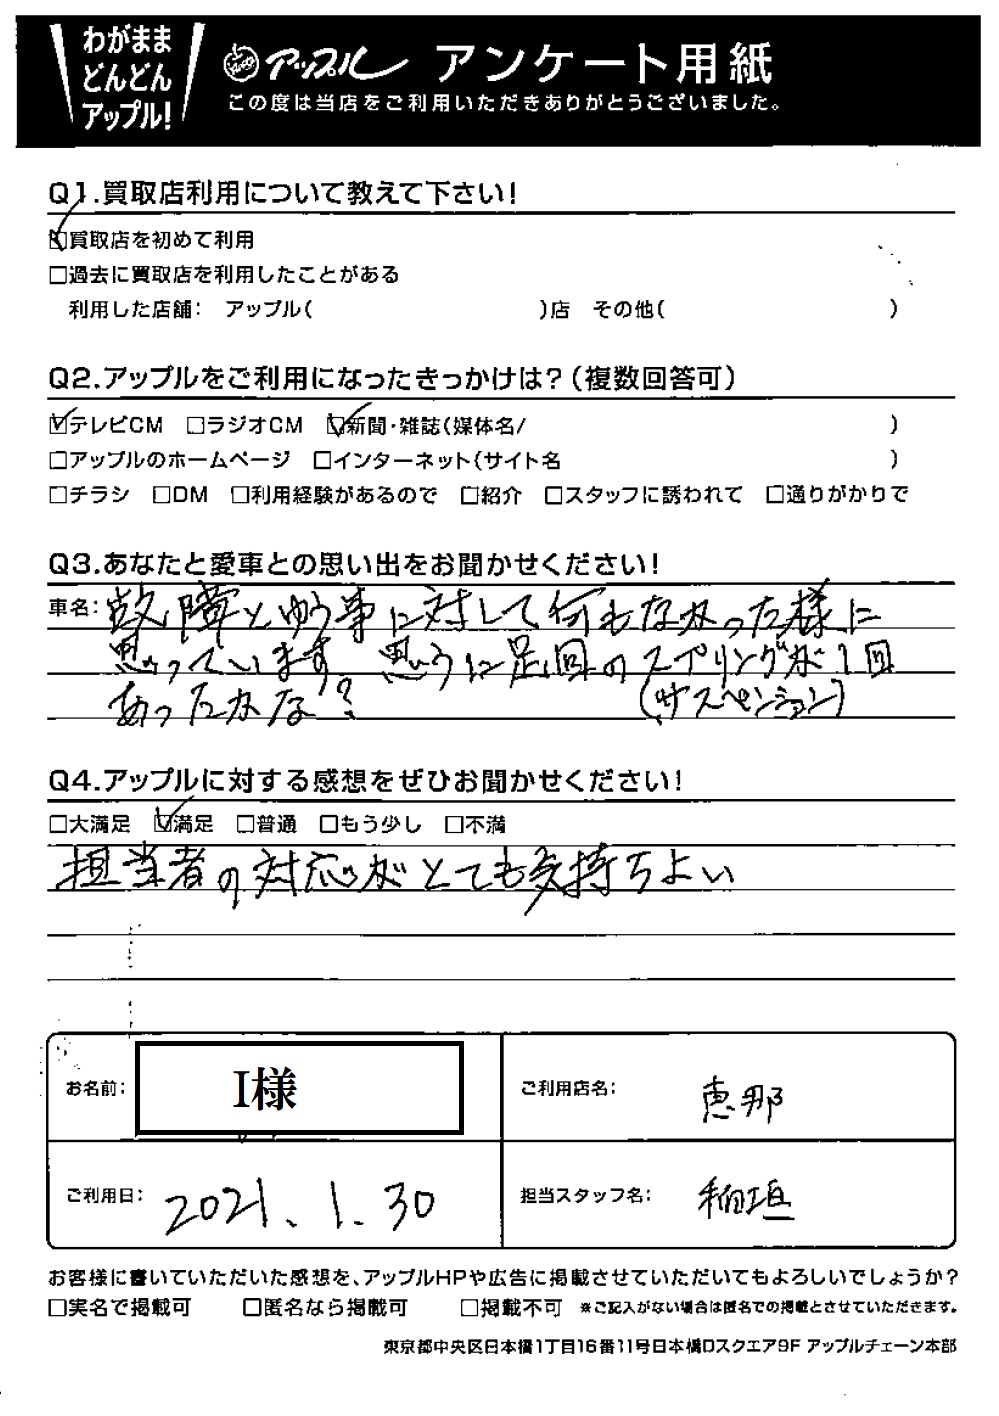 わがまま
どんどん
アップル!
アップル アンケート用紙
この度は当店をご利用いただきありがとうございました。
Q1.買取店利用について教えて下さい!
☑買取店を初めて利用
□過去に買取店を利用したことがある
利用した店舗: アップル( )店 その他( )
Q2.アップルをご利用になったきっかけは?(複数回答可)
☑テレビCM □ラジオCM ☑新聞・雑誌(媒体名/ )
□アップルのホームページ □インターネット(サイト名 )
□チラシ □DM □利用経験があるので □紹介 □スタッフに誘われて □通りがかりで
Q3.あなたと愛車との思い出をお聞かせください!
車名: 故障とゆう事に対して何もなかった様に
思っています 思うに足回のスプリングが1回
あったかな? (サスペンション)
Q4.アップルに対する感想をぜひお聞かせください!
□大満足 ☑満足 □普通 □もう少し □不満
担当者の対応がとても気持ちよい
お名前: I様
ご利用店名: 恵那
ご利用日: 2021.1.30
担当スタッフ名: 稲垣
お客様に書いていただいた感想を、アップルHPや広告に掲載させていただいてもよろしいでしょうか?
□実名で掲載可 □匿名なら掲載可 □掲載不可 ※ご記入がない場合は匿名での掲載とさせていただきます。
東京都中央区日本橋1丁目16番11号日本橋Dスクエア9F アップルチェーン本部